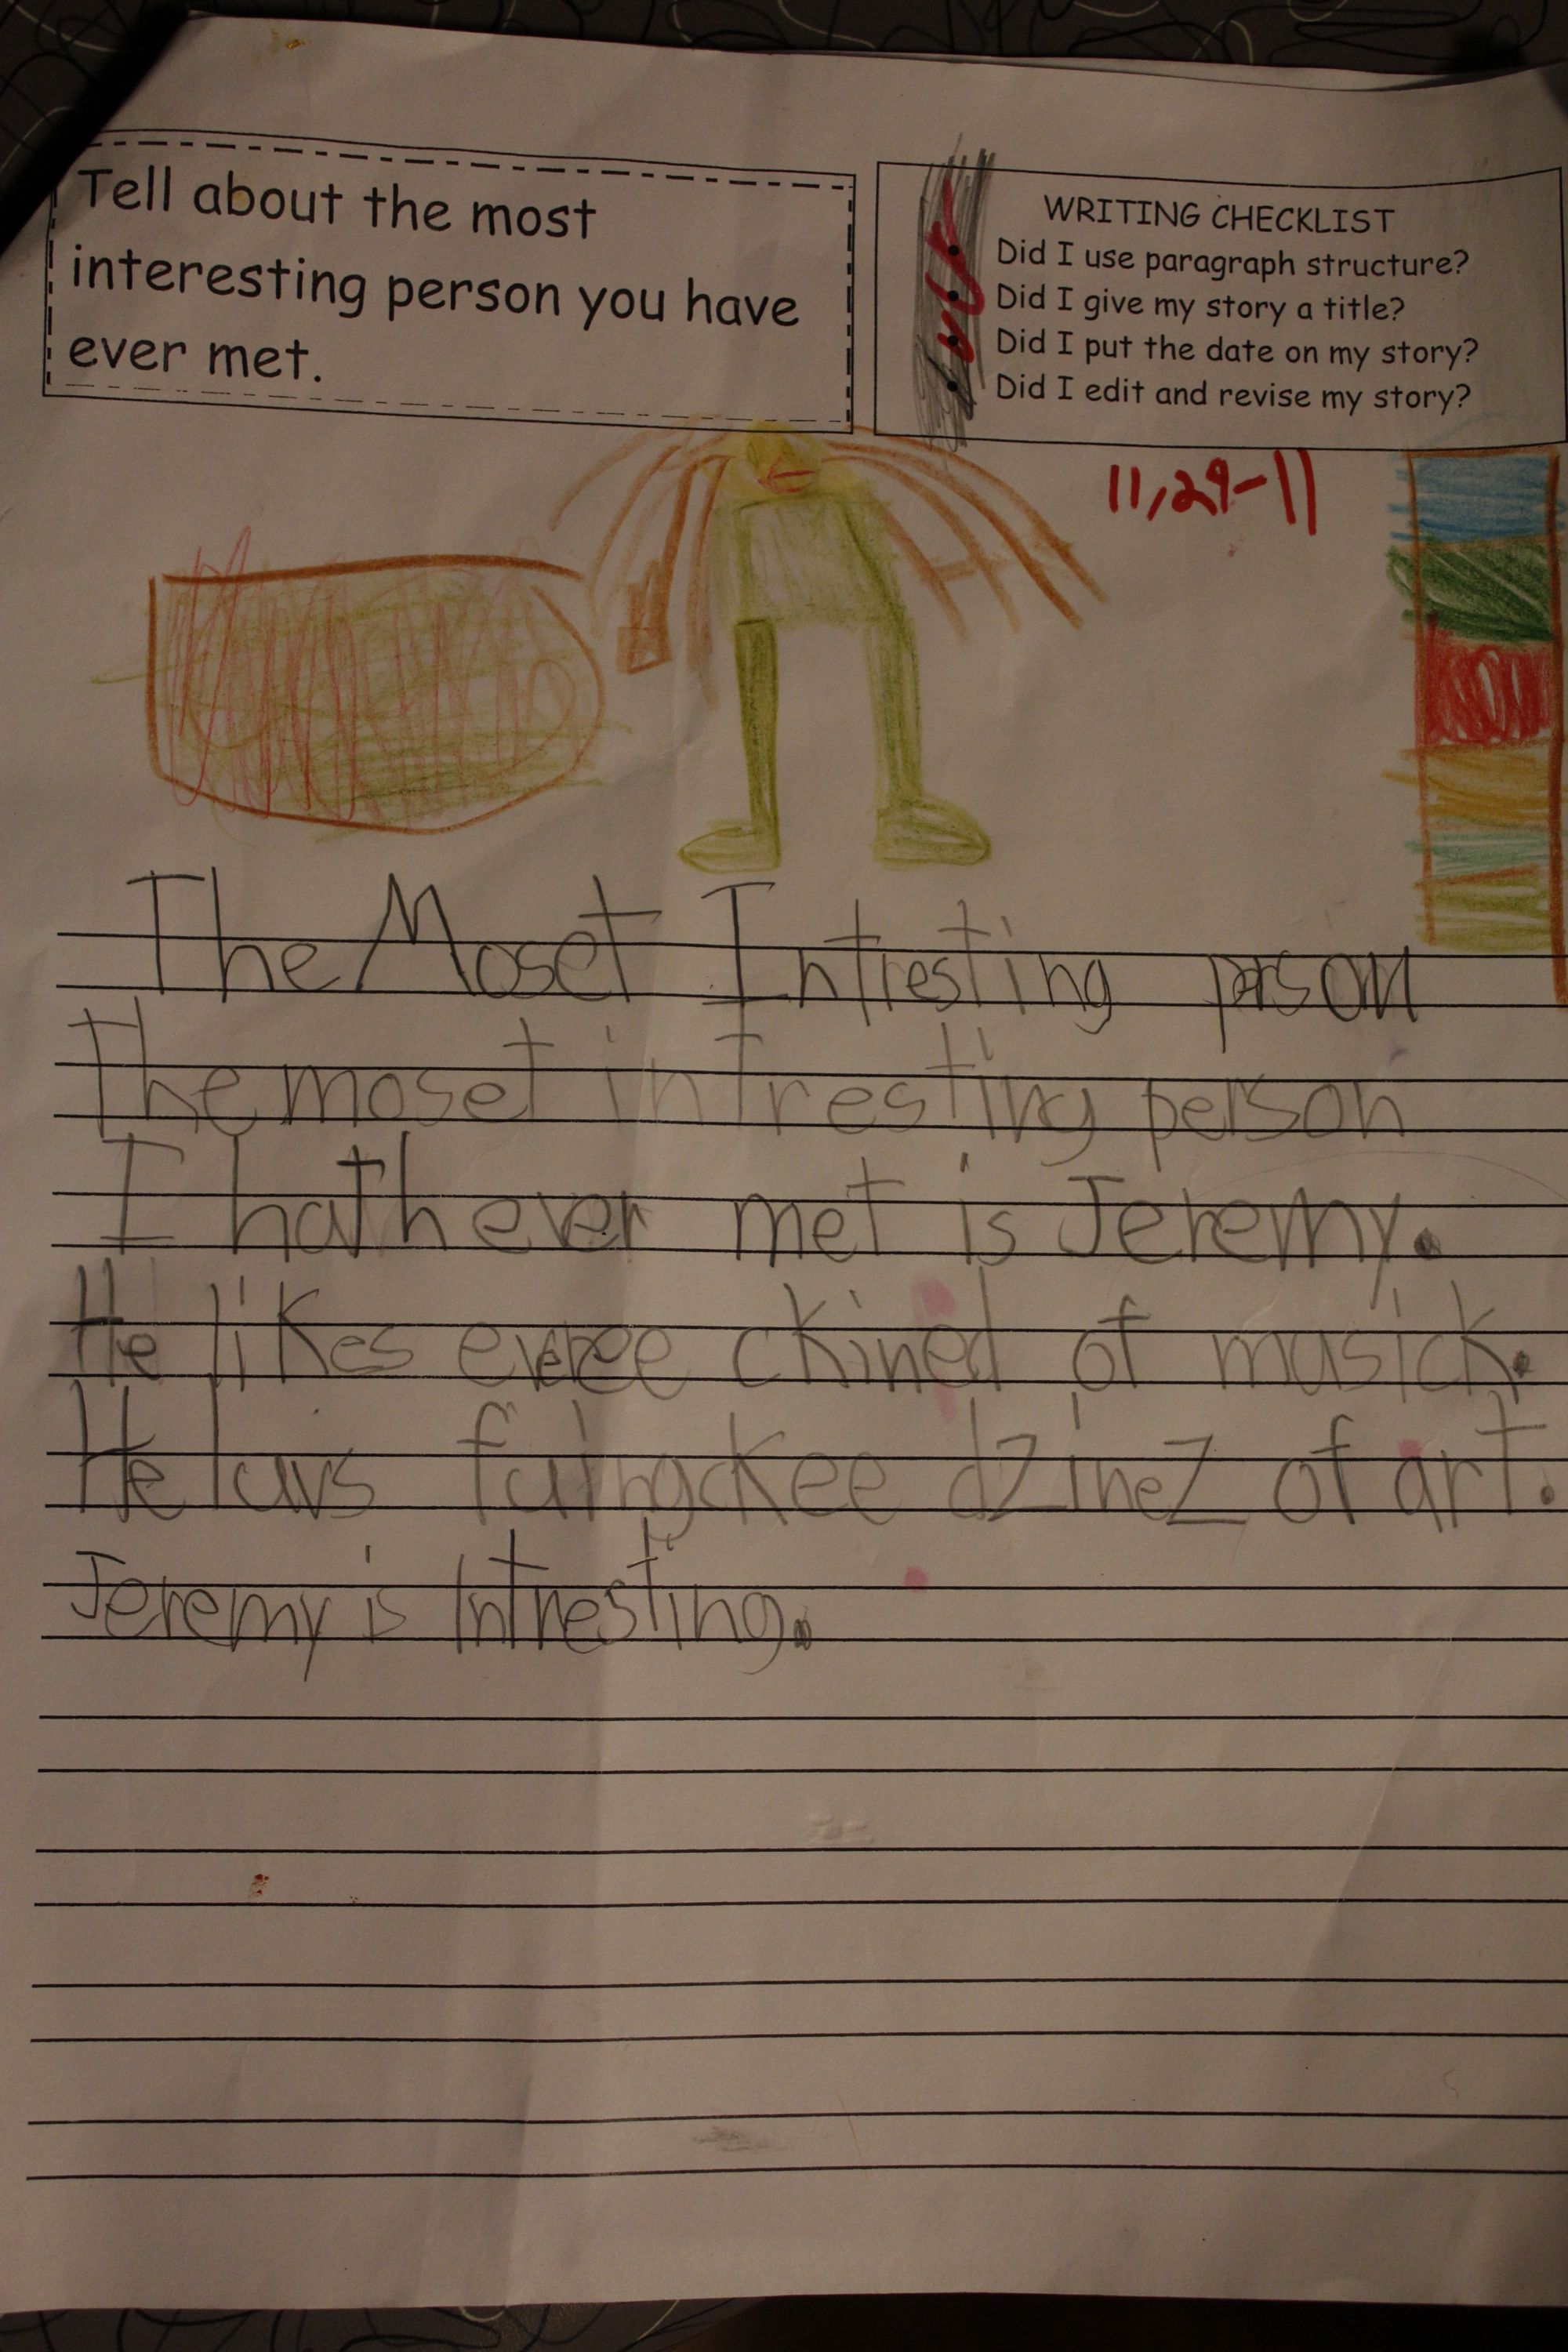 Tell about the most
interesting person you have
ever met.
WRITING CHECKLIST
Did I use paragraph structure?
Did I give my story a title?
Did I put the date on my story?
Did I edit and revise my story?
11,29-11
The Moset Intresting person
The moset intresting person
I hath ever met is Jeremy.
He likes everee ckined of musick.
He luvs fuingckee dzinez of art.
Jeremy is Intresting.